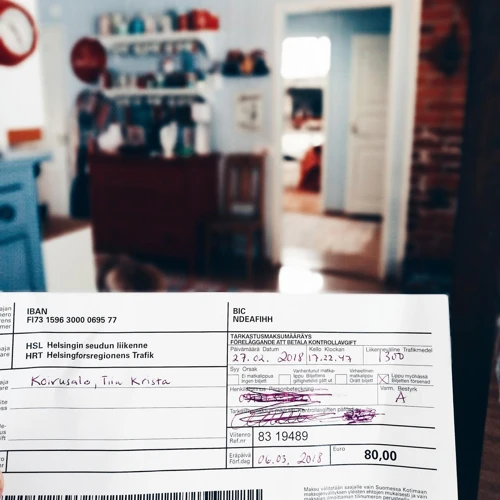 IBAN
FI73 1596 3000 0695 77
BIC
NDEAFIHH
TARKASTUSMAKSUMÄÄRÄYS
FÖRELÄGGANDE ATT BETALA KONTROLLAVGIFT
HSL Helsingin seudun liikenne
HRT Helsingforsregionens Trafik
Päivämäärä Datum
27.02. 2018
Kello Klockan
17.22.47
Liikenneväline Trafikmedel
1300
Syy Orsak
Ei matkalippua
Ingen biljett
Vanhentunut matka-
lippu Biljettens
giltighetstid gått ut
Virheellinen
matkalippu
Orätt biljett
Lippu myöhässä
Biljetten försenad
Koivusalo, Tiia Krista
Varm. Bestyrk
A
Viitenro
Ref.nr
83 19489
Eräpäivä
Förf.dag
06.03. 2018
Euro
80,00
Maksu välitetään saajalle vain Suomessa Kotimaan